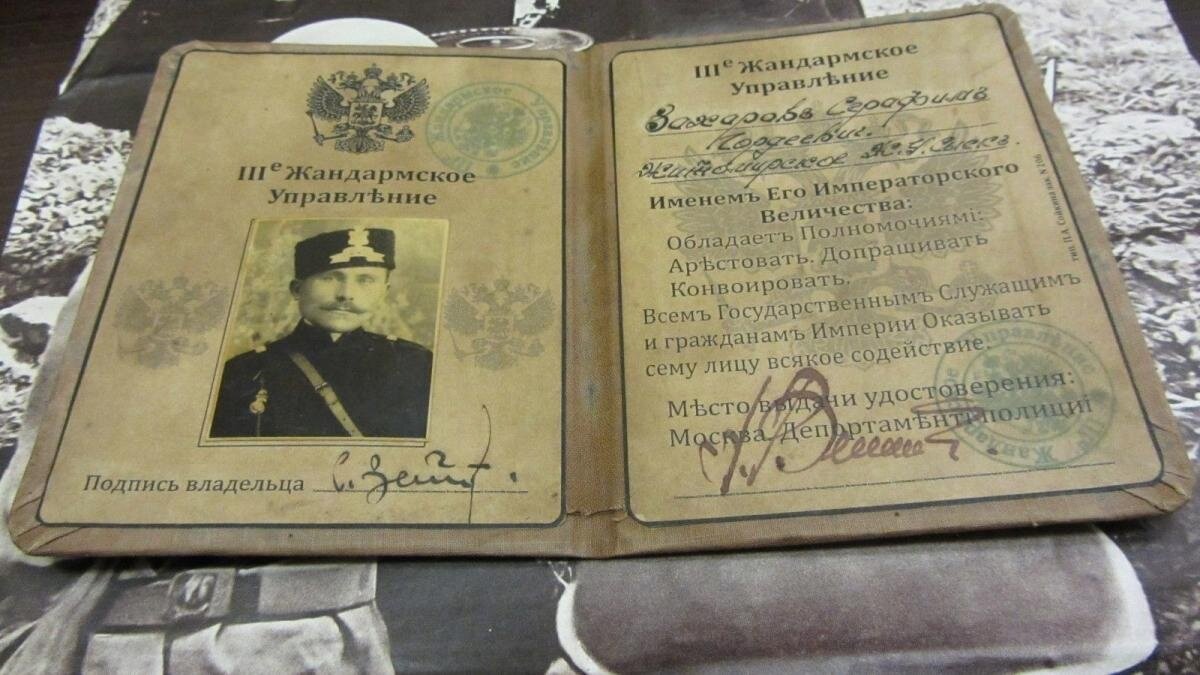 Жандармское Управленie
IIIе Жандармское
Управлѣние
Подпись владельца
IIIе Жандармское
Управлѣние
Захаровъ Серафимъ
Гордеевич.
Житомирское Ж.У.
Именемъ Его Императорского
Величества:
Обладаетъ Полномочиямi:
Арѣстовать. Допрашивать
Конвоировать.
Всемъ Государственнымъ Служащимъ
и гражданамъ Империи Оказывать
сему лицу всякое содействие.
Мѣсто выдачи удостоверения:
Москва. Депортамѣнтъ полициi